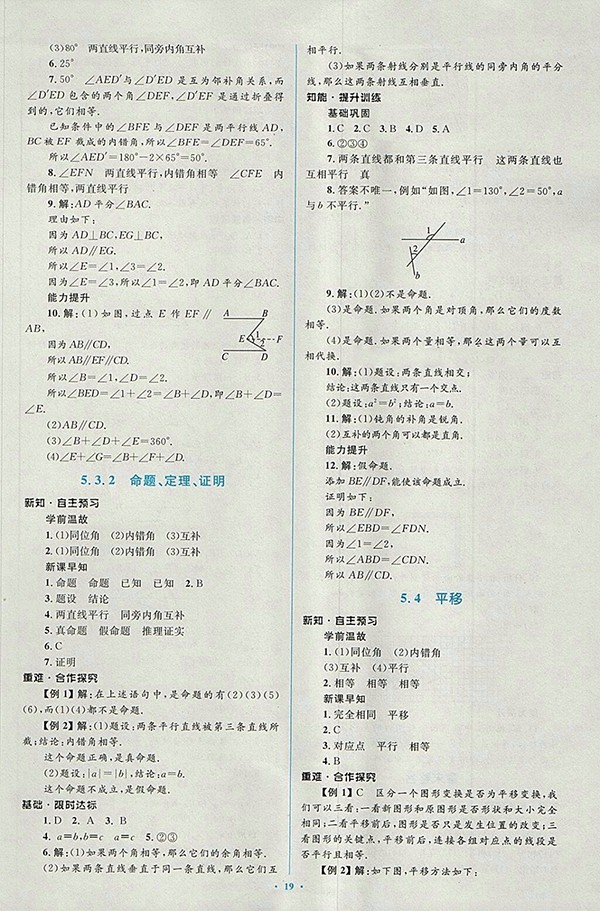 (3)80° 两直线平行,同旁内角互补
6.25°
7.50° ∠AED′与∠D′ED是互为邻补角关系,而
∠D′ED包含的两个角∠DEF,∠D′EF是通过折叠得
到的,它们相等.
已知条件中的∠BFE与∠DEF是两平行线AD,
BC被EF截成的内错角,所以∠BFE=∠DEF=65°.
所以∠AED′=180°-2×65°=50°.
8.∠EFN 两直线平行,内错角相等 ∠CFE 内
错角相等,两直线平行
9.解:AD平分∠BAC.
理由如下:
因为AD⊥BC,EG⊥BC,
所以AD∥EG.
所以∠E=∠1,∠3=∠2.
因为∠E=∠3,所以∠1=∠2,即AD平分∠BAC.
能力提升
10.解:(1)如图,过点E作EF∥
AB,
因为AB∥CD,
所以AB∥EF∥CD.
所以∠B=∠1,∠D=∠2.
所以∠BED=∠1+∠2=∠B+∠D,即∠B+∠D=
∠E.
A B
E 1 F
2
C D
(2)AB∥CD.
(3)∠B+∠D+∠E=360°.
(4)∠E+∠G=∠B+∠F+∠D.
5.3.2 命题、定理、证明
新知·自主预习
学前温故
1.(1)同位角 (2)内错角 (3)互补
2.(1)同位角 (2)内错角 (3)互补
新课早知
1.命题 命题 已知 已知 2.B
3.题设 结论
4.两直线平行 同旁内角互补
5.真命题 假命题 推理证实
6.C
7.证明
重难·合作探究
【例1】解:在上述语句中,是命题的有(2)(3)(5)
(6),而(1)(4)都不是命题.
【例2】解:(1)题设:两条平行直线被第三条直线所
截;结论:内错角相等.
这个命题正确,是真命题.
(2)题设:|a|=|b|,结论:a=b.
这个命题不成立,是假命题.
基础·限时达标
1.D 2.A 3.C
4.a=b,b=c a=c 5.②③
6.解:(1)如果两个角相等,那么它们的余角相等.
(2)如果两条直线垂直于同一条直线,那么它们互
相平行.
(3)如果两条射线分别是平行线的同旁内角的平分
线,那么这两条射线互相垂直.
知能·提升训练
基础巩固
1.C 2.C 3.B 4.D 5.A
6.②③④
7.两条直线都和第三条直线平行 这两条直线也
互相平行 真
8.答案不唯一,例如“如图,∠1=130°,∠2=50°,a
与b不平行.”
1
a
2
b
9.解:(1)(2)不是命题.
(3)是命题.如果两个角是对顶角,那么它们的度数
相等.
(4)是命题.如果两个量相等,那么这两个量可以互
相代换.
10.解:(1)题设:两条直线相交;
结论:这两条直线只有一个交点.
(2)题设:a²=b²;结论:a=b.
11.解:(1)钝角的补角是锐角.
(2)互补的两个角可以都是直角.
能力提升
12.解:假命题.
添加BE∥DF,能使该命题成立.
证明如下:
因为BE∥DF,
所以∠EBD=∠FDN.
因为∠1=∠2,
所以∠ABD=∠CDN.
所以AB∥CD.
5.4 平移
新知·自主预习
学前温故
1.(1)同位角 (2)内错角
(3)互补 (4)平行
2.相等 相等 相等
新课早知
1.完全相同 平移
2.B
3.对应点 平行 相等
4.B
重难·合作探究
【例1】C 区分一个图形变换是否为平移变换,我
们可以三看:一看新图形和原图形是否形状和大小完全
相同;二看平移前后,图形是否只是发生位置的改变;三看
图形的关键点,平移前后,连接各组对应点的线段是
否平行且相等.
【例2】解:如下图,平移方法如下:
19